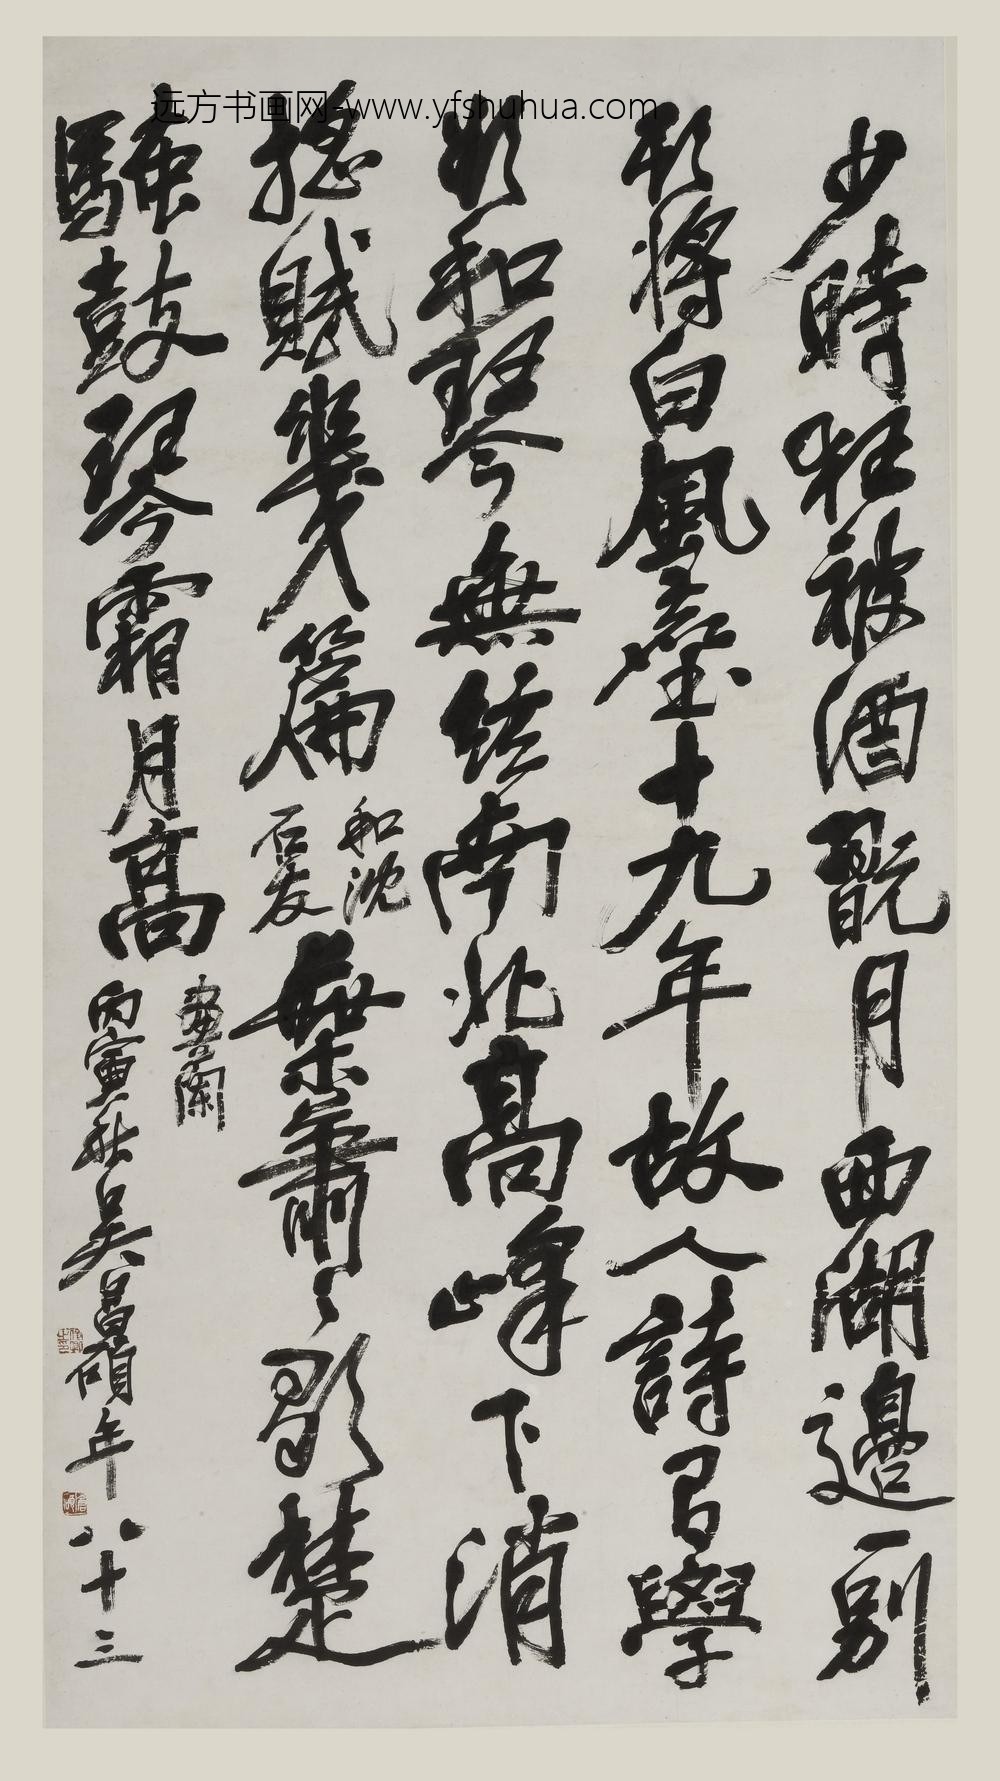 远方书画网-www.yfshuhua.com
少時狂被酒翫月西湖邊一別
將白風十九年故人詩學
和琴無絃南北高峰下消
搖賦幾篇
和沈
石友
葉蕭々歌楚
騷鼓琴霜月高
畫蘭
丙寅秋吳昌碩年八十三